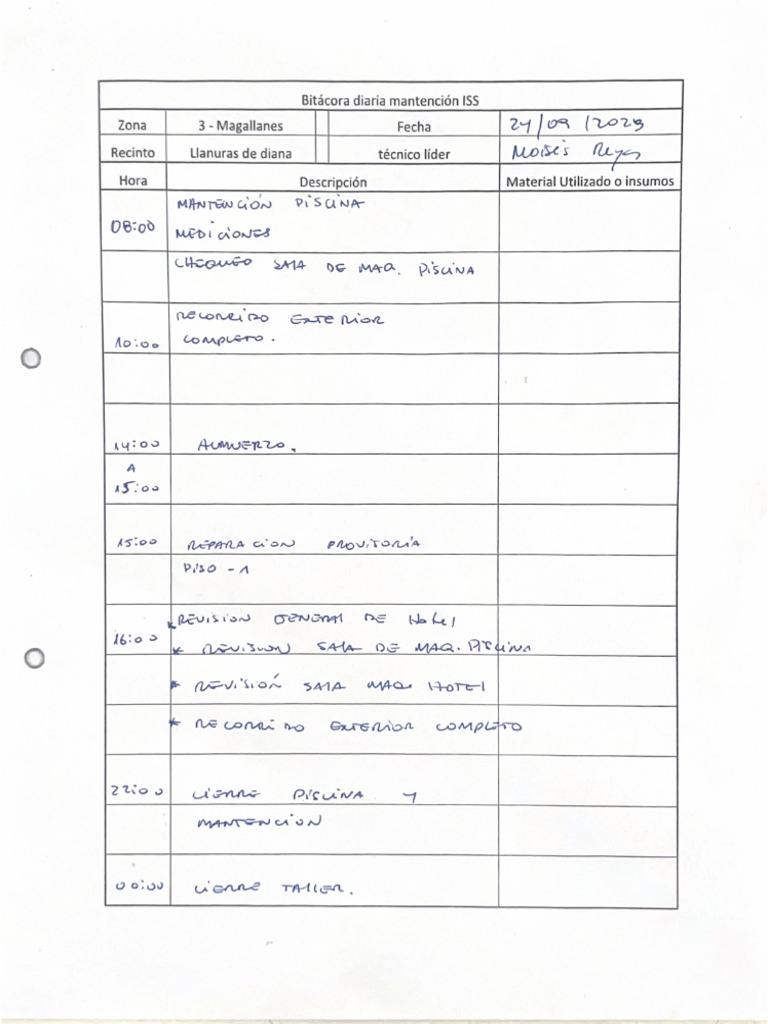 Bitácora diaria mantención ISS
Zona 3 - Magallanes Fecha 24/09/2023
Recinto Llanuras de diana técnico líder Moisés Reyes
Hora Descripción Material Utilizado o insumos
MANTENCIÓN PISCINA
08:00 MEDICIONES
CHEQUEO SALA DE MAQ. PISCINA
RECORRIDO EXTERIOR
10:00 COMPLETO.
14:00 ALMUERZO.
A
15:00
15:00 REPARACION PROVITORIA
PISO -1
* REVISION GENERAL DE Hotel
16:00 * REVISION SALA DE MAQ. PISCINA
* REVISIÓN SALA MAQ. HOTEL
* RECORRIDO EXTERIOR COMPLETO
22:00 CIERRE PISCINA Y
MANTENCION
00:00 CIERRE TALLER.